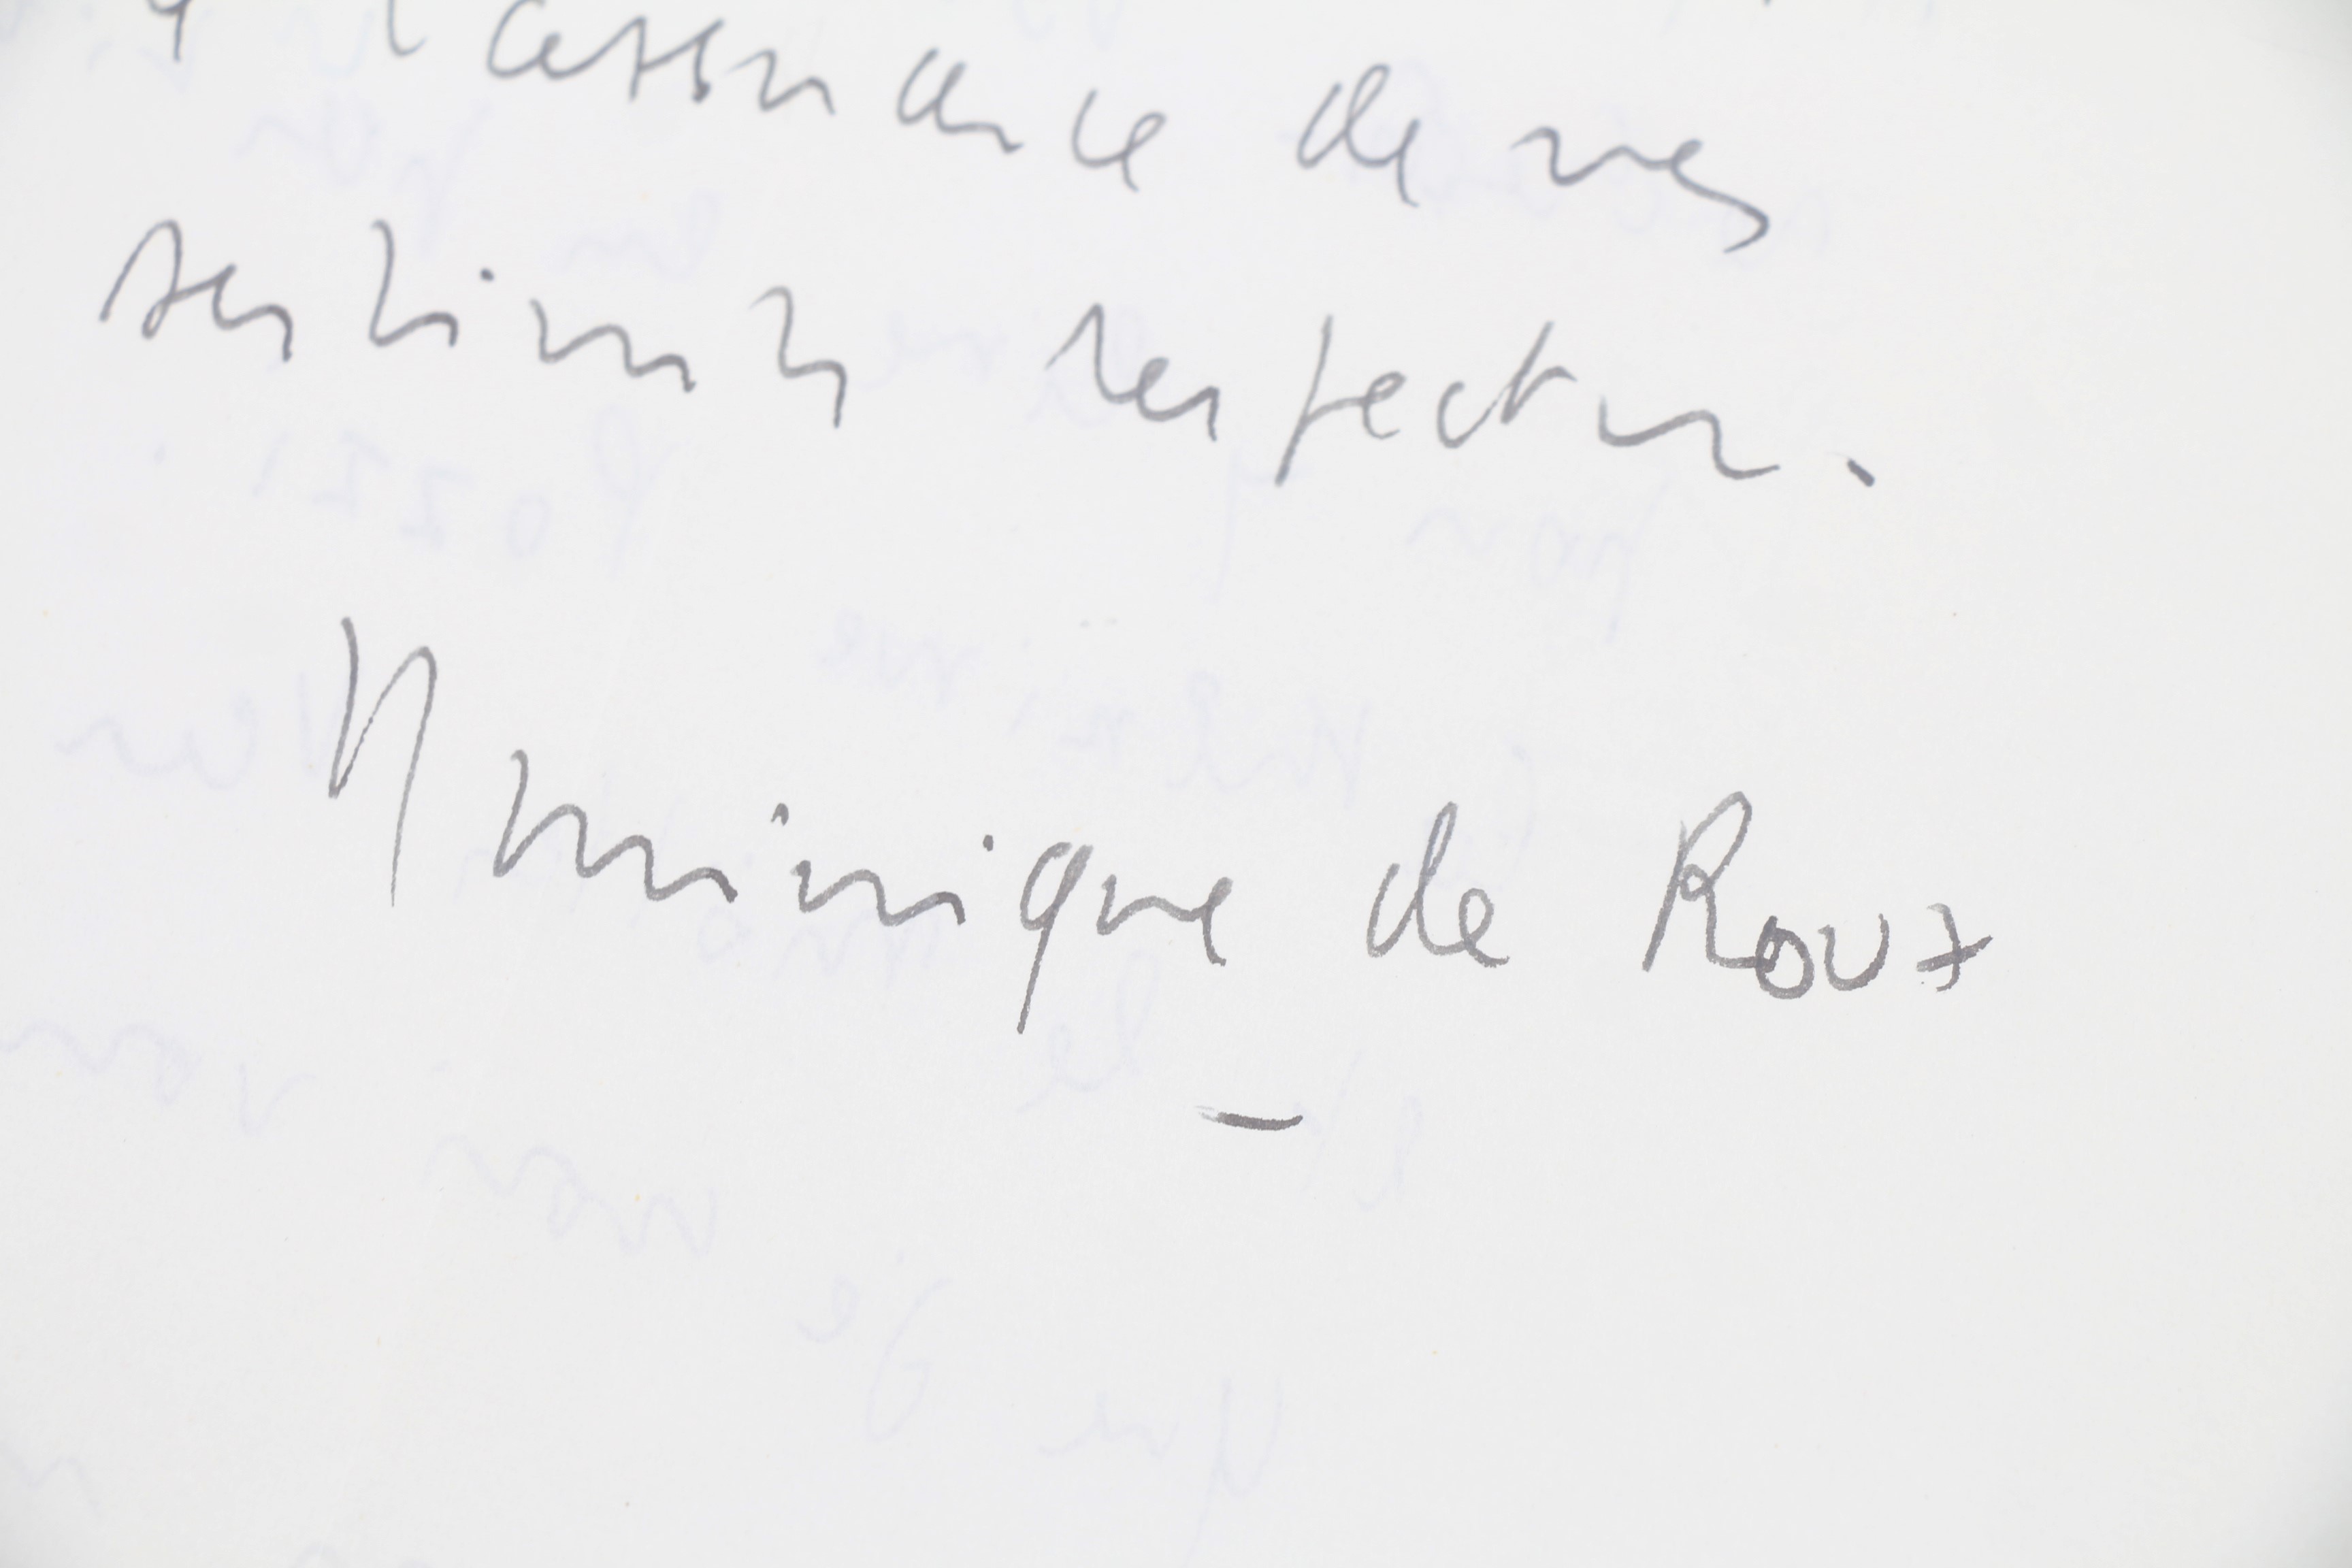 l'assurance de mes
sentiments respectueux.
Dominique de Roux